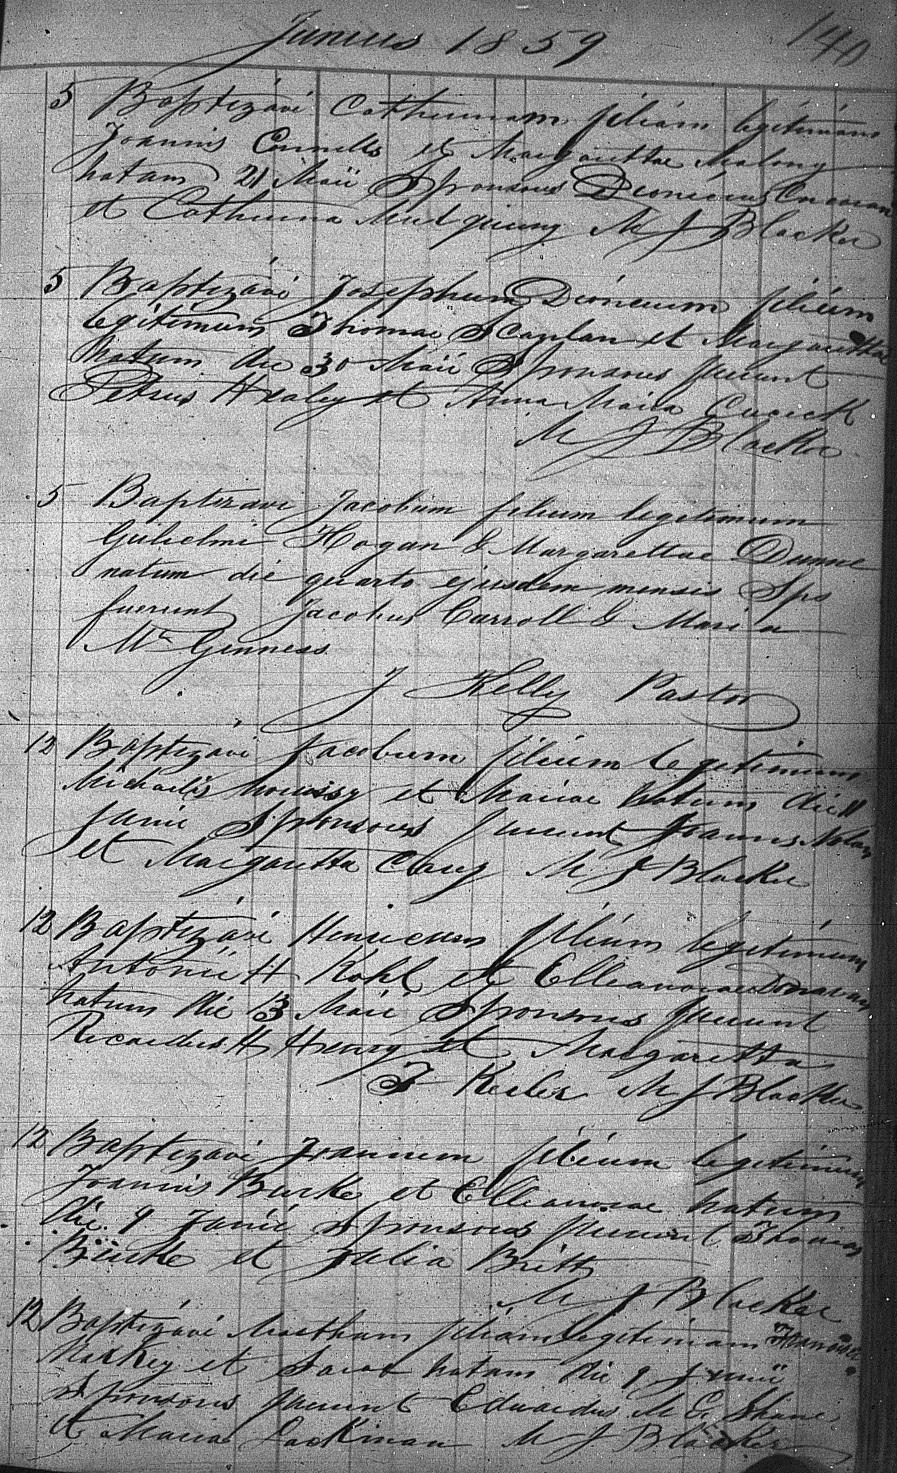 Junius 1859 140
5 Baptizavi Catherinam filiam legitimam
Joannis Connells et Margarittae Malony
natam 21 Maii Sponsores Dionicius Corcoran
et Catherina M. J. Blacker
5 Baptizavi Josephum Dionicium filium
legitimum Thomae S Caplan et Margarittae
natum die 30 Maii Sponsores fuerunt
Petrus Healey et Anna Maria Cusick
M J Blacker
5 Baptizavi Jacobum filium legitimum
Gulielmi Hogan & Margarettae Dunne
natum die quarto ejusdem mensis Sps
fuerunt Jacobus Carroll & Maria
Mc Genness
J Kelly Pastor
12 Baptizavi Jacobum filium legitimum
Michaelis et Mariae natum die 11
Junii Sponsores fuerunt Joannes Nolan
et Margaritta Casey M J Blacker
12 Baptizavi Henricum filium legitimum
Antonii H Kohl et Elleanorae Donavan
natum die 13 Maii Sponsores fuerunt
Ricardus H Henry et Margaretta
F Keiler M J Blacker
12 Baptizavi Joannem filium legitimum
Joannis Burke et Elleanorae natum
die 9 Junii Sponsores fuerunt Thomas
Burke et Julia Britt
M J Blacker
12 Baptizavi Martham filiam legitimam Francisci
Markey et Sarae natam die 9 Junii
Sponsores fuerunt Eduardus M. E. Shane
et Maria Lackman M J Blacker